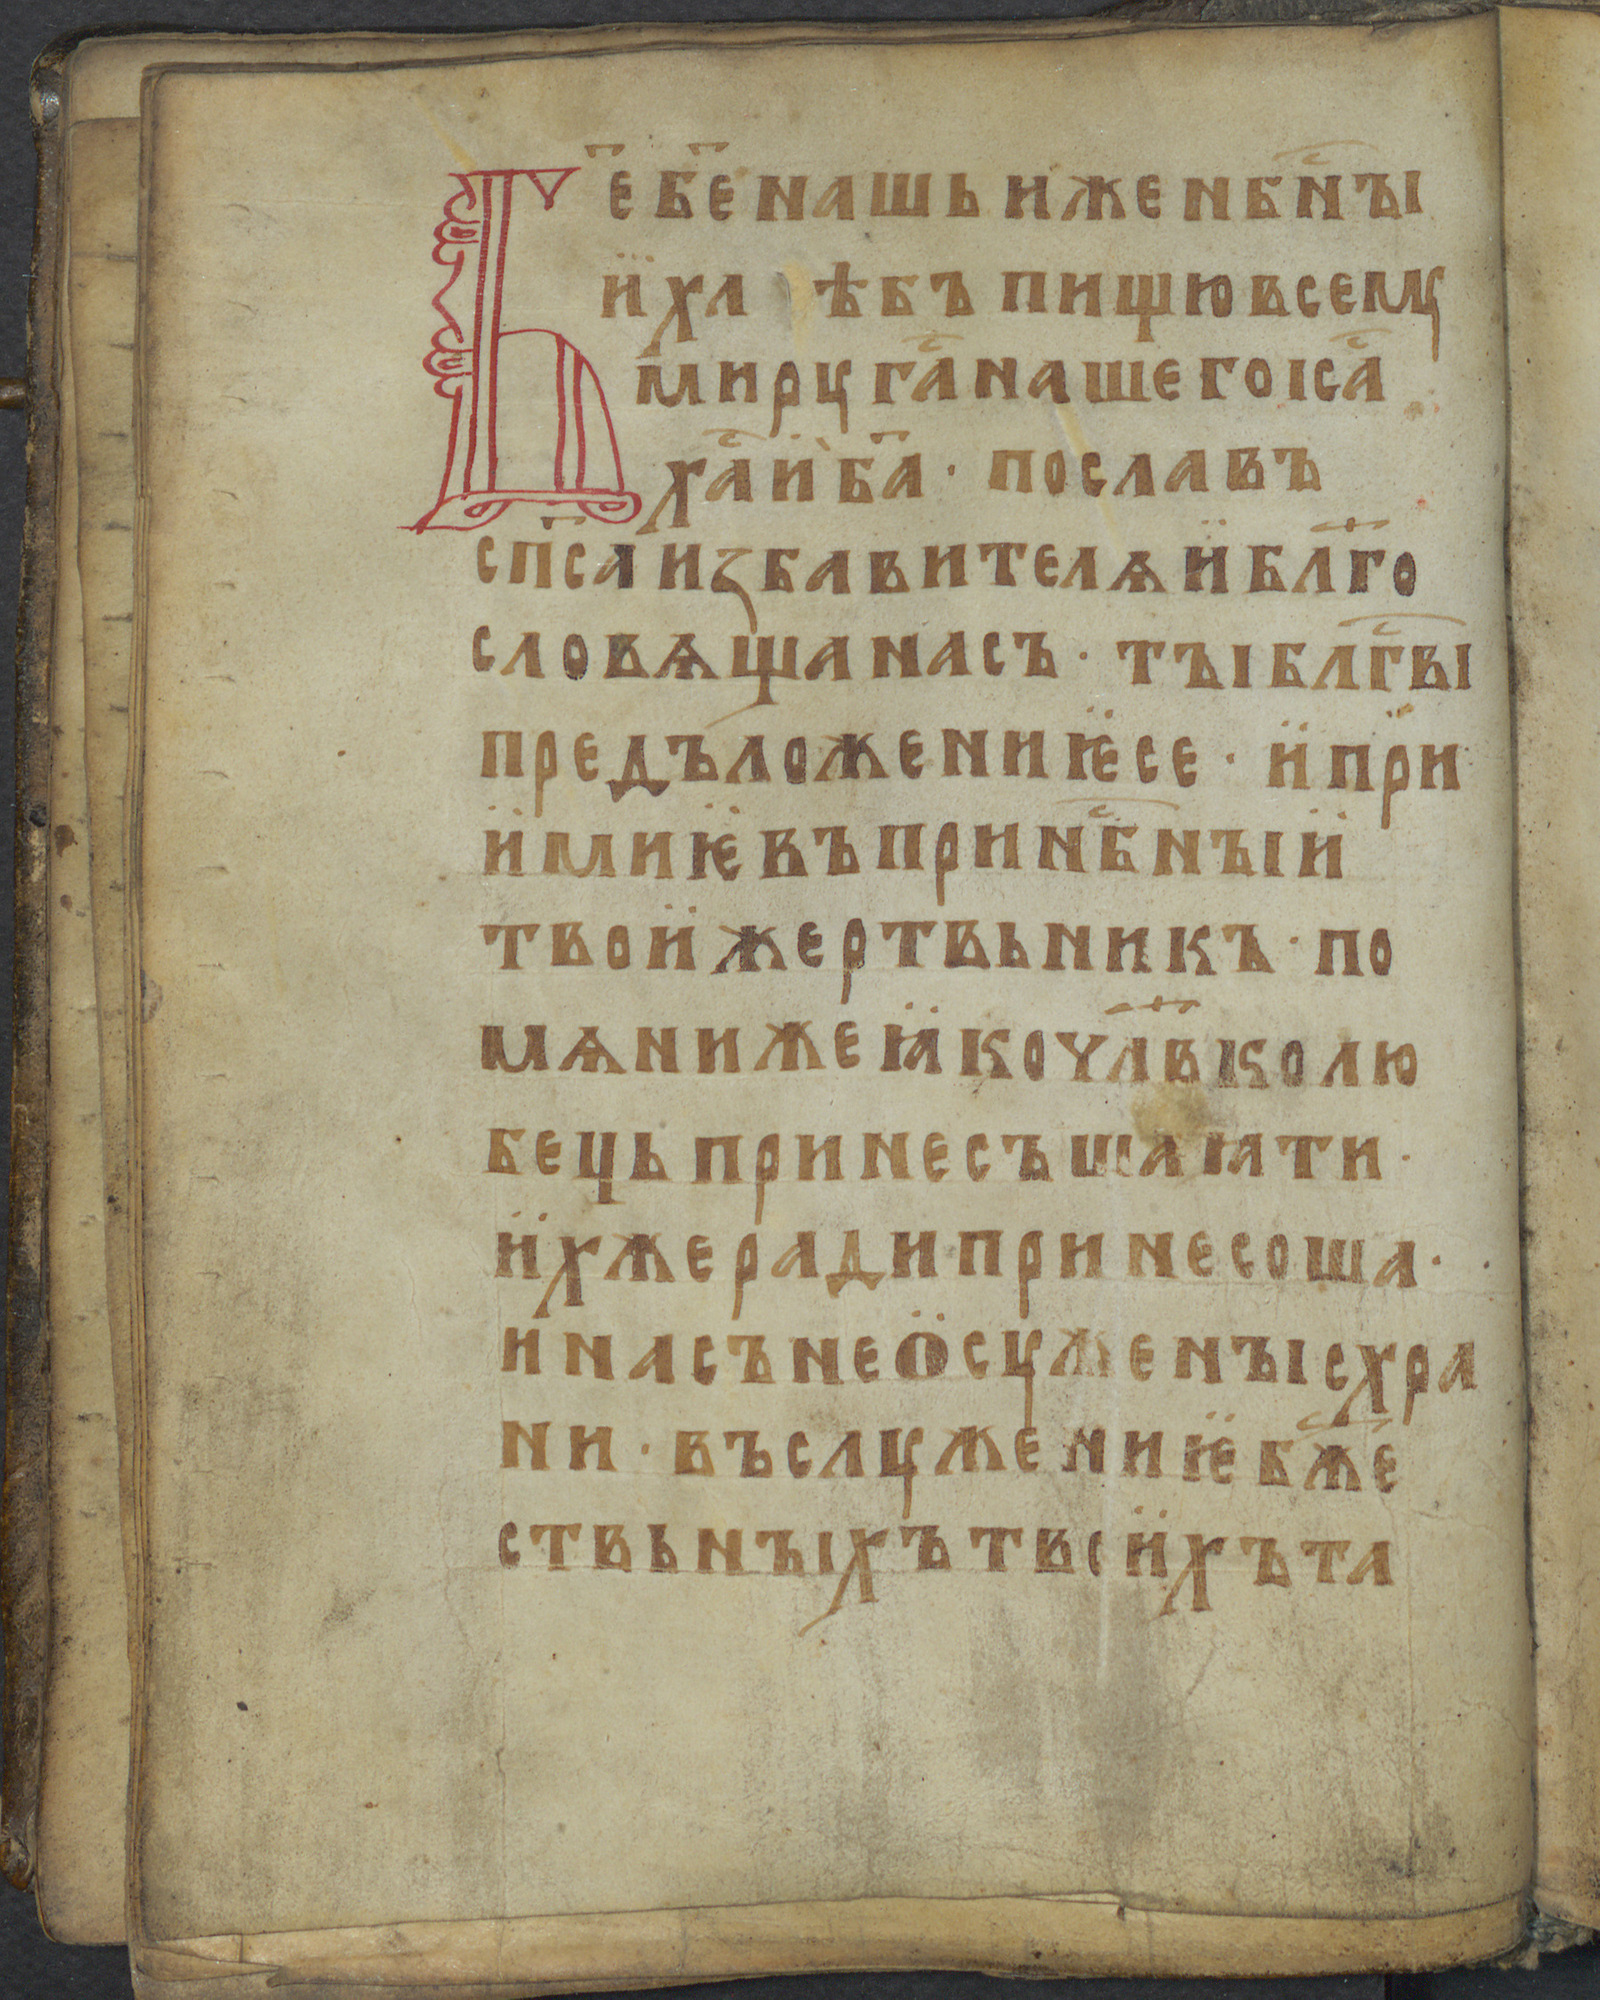 Бе҃ бе҃ нашь иже нбⷭ҇нъі
ӥ хлѣбъ пищю всемꙋ
мирꙋ гаⷭ҇ нашего ісаⷭ҇
хаⷭ҇ ӥ ба҃ · пославъ
сп҃са избавителѧ ӥ блг҃о
словѧща насъ · тъі блгⷭ҇ви
предъложениѥ се · ӥ при
ӥми ѥ въ принбⷭ҇нъіӥ
твоӥ жертвьникъ · по
мѧни же ꙗко члв҃колю
бець принесъшаꙗ ти ·
ӥхже ради принесоша ·
и насъ неѻсꙋженъі схра
ни · въ слꙋжениѥ бжⷭ҇е
ствьнъіхъ твоӥхъ та